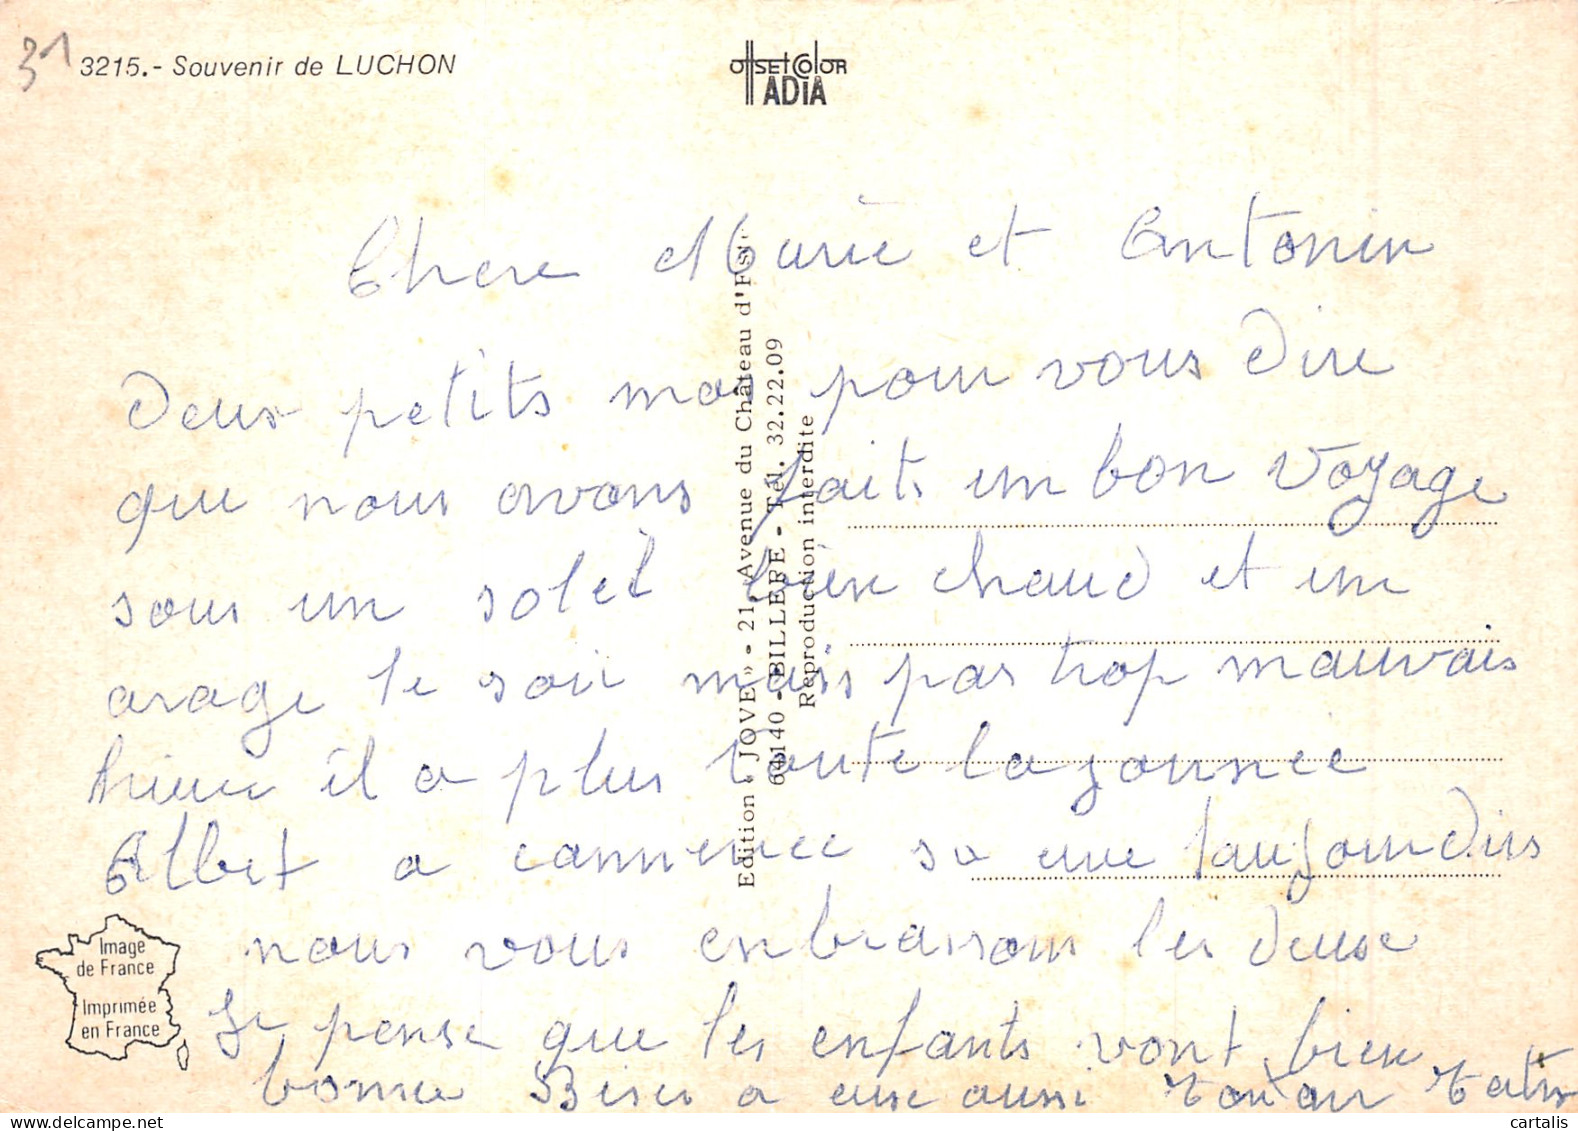 31
3215.- Souvenir de LUCHON
offset color
ADIA
Chere Marie et Antonin
Deux petits mos pour vous dire
que nous avons faits un bon voyage
sous un soleil bien chaud et un
arage le soir mais pas trop mauvais
hier il a plus toute la journee
Albert a commencee sa cure laujourdius
nous vous enbrassons les deux
Je pense que les enfants vont bien
bonne Bises a eux aussi
Edition « JOVE » - 21, Avenue du Château d'Este
64140 - BILLERE - Tél. 32.22.09
Reproduction interdite
Image
de France
Imprimée
en France
cartalis